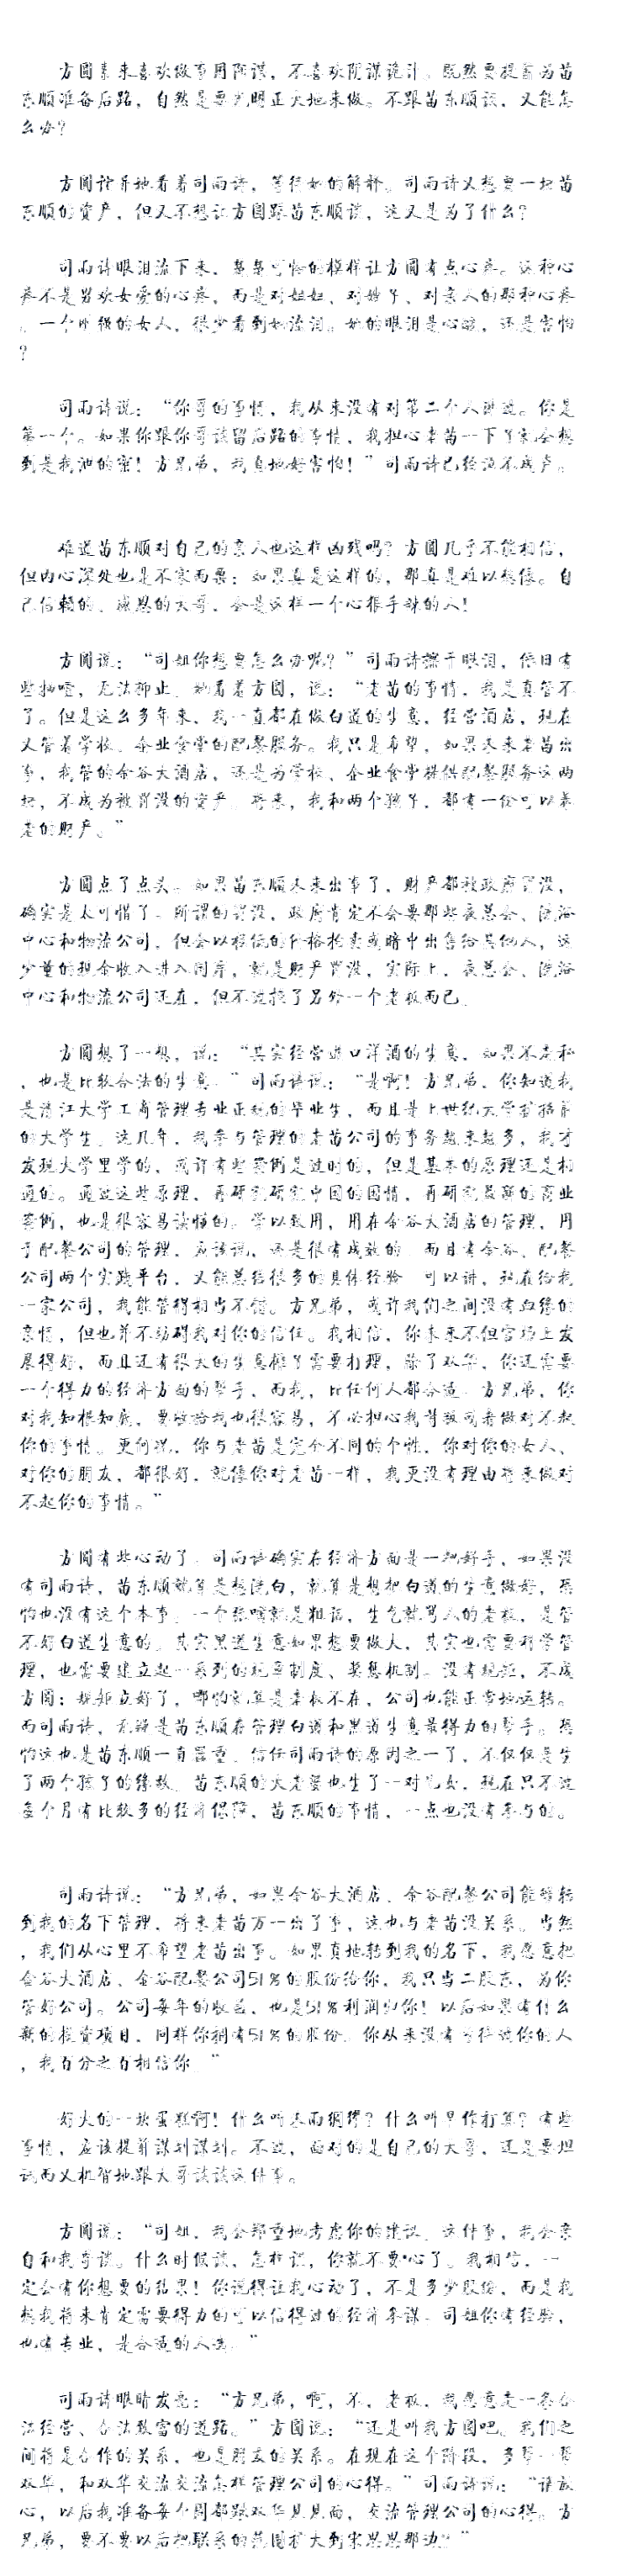 方圆素来喜欢做事用阳谋，不喜欢阴谋诡计。既然要提前为苗
东顺准备后路，自然是要光明正大地来做。不跟苗东顺谈，又能怎
么办？
方圆诧异地看着司雨诗，等待她的解释。司雨诗又想要一块苗
东顺的资产，但又不想让方圆跟苗东顺谈，这又是为了什么？
司雨诗眼泪流下来，楚楚可怜的模样让方圆有点心疼。这种心
疼不是男欢女爱的心疼，而是对姐姐、对嫂子、对亲人的那种心疼
。一个刚强的女人，很少看到她流泪。她的眼泪是心酸，还是害怕
？
司雨诗说：“你哥的事情，我从来没有对第二个人讲过。你是
第一个。如果你跟你哥谈留后路的事情，我担心老苗一下子就会想
到是我泄的密！方兄弟，我真地好害怕！”司雨诗已经泣不成声。
难道苗东顺对自己的亲人也这样凶残吗？方圆几乎不能相信，
但内心深处也是不寒而栗：如果真是这样的，那真是难以想像。自
己信赖的、感恩的大哥，会是这样一个心狠手辣的人！
方圆说：“司姐你想要怎么办呢？”司雨诗擦干眼泪，依旧有
些抽噎，无法抑止。她看着方圆，说：“老苗的事情，我是真管不
了。但是这么多年来，我一直都在做白道的生意，经营酒店，现在
又管着学校、企业食堂的配餐服务。我只是希望，如果未来老苗出
事，我管的金谷大酒店，还是为学校、企业食堂提供配餐服务这两
块，不成为被罚没的资产。将来，我和两个孩子，都有一份可以养
老的财产。”
方圆点了点头。如果苗东顺未来出事了，财产都被政府罚没，
确实是太可惜了。所谓的罚没，政府肯定不会要那些夜总会、洗浴
中心和物流公司，但会以极低的价格拍卖或暗中出售给其他人，这
少量的现金收入进入国库，就是财产罚没，实际上，夜总会、洗浴
中心和物流公司还在，但不过换了另外一个老板而已。
方圆想了一想，说：“其实经营进口洋酒的生意，如果不走私
，也是比较合法的生意。”司雨诗说：“是啊！方兄弟，你知道我
是清江大学工商管理专业正规的毕业生，而且是上世纪大学扩招前
的大学生。这几年，我参与管理的老苗公司的事务越来越多，我才
发现大学里学的，或许有些案例是过时的，但是基本的原理还是相
通的。通过这些原理，再研究研究中国的国情，再研究最新的商业
案例，也是很容易读懂的。学以致用，用在金谷大酒店的管理，用
于配餐公司的管理，应该说，还是很有成效的。而且有金谷、配餐
公司两个实践平台，又能总结很多的具体经验。可以讲，现在给我
一家公司，我能管得相当不错。方兄弟，或许我们之间没有血缘的
亲情，但也并不妨碍我对你的信任。我相信，你未来不但官场上发
展得好，而且还有很大的生意摊子需要打理，除了双华，你还需要
一个得力的经济方面的帮手，而我，比任何人都合适。方兄弟，你
对我知根知底，要收拾我也很容易，不必担心我背叛或者做对不起
你的事情。更何况，你与老苗是完全不同的个性，你对你的女人、
对你的朋友，都很好，就像你对老苗一样，我更没有理由将来做对
不起你的事情。”
方圆有些心动了。司雨诗确实在经济方面是一把好手，如果没
有司雨诗，苗东顺就算是想洗白，就算是想把白道的生意做好，恐
怕也没有这个本事。一个张嘴就是粗话，生气就骂人的老板，是管
不好白道生意的。其实黑道生意如果想要做大，其实也需要科学管
理，也需要建立起一系列的规章制度、奖惩机制。没有规矩，不成
方圆；规矩立好了，哪怕就算是老板不在，公司也能正常地运转。
而司雨诗，无疑是苗东顺在管理白道和黑道生意最得力的帮手。恐
怕这也是苗东顺一直器重、信任司雨诗的原因之一了，不仅仅是生
了两个孩子的缘故。苗东顺的大老婆也生了一对儿女，现在只不过
每个月有比较多的经济保障，苗东顺的事情，一点也没有参与的。
司雨诗说：“方兄弟，如果金谷大酒店、金谷配餐公司能够转
到我的名下管理，将来老苗万一出了事，这也与老苗没关系。当然
，我们从心里不希望老苗出事。如果真地转到我的名下，我愿意把
金谷大酒店、金谷配餐公司51%的股份给你，我只当二股东，为你
管好公司。公司每年的收益，也是51%利润归你！以后如果有什么
新的投资项目，同样你拥有51%的股份。你从来没有亏待过你的人
，我百分之百相信你。”
好大的一块蛋糕啊！什么叫未雨绸缪？什么叫早作打算？有些
事情，应该提前谋划谋划。不过，面对的是自己的大哥，还是要坦
诚而又机智地跟大哥谈谈这件事。
方圆说：“司姐，我会郑重地考虑你的建议。这件事，我会亲
自和我哥谈。什么时候谈，怎样谈，你就不要心了。我相信，一
定会有你想要的结果！你说得让我心动了，不是多少股份，而是我
想我将来肯定需要得力的可以信得过的经济参谋。司姐你有经验，
也有专业，是合适的人选。”
司雨诗眼睛发亮：“方兄弟，啊，不，老板，我愿意走一条合
法经营、合法致富的道路。”方圆说：“还是叫我方圆吧。我们之
间将是合作的关系，也是朋友的关系。在现在这个阶段，多帮一帮
双华，和双华交流交流怎样管理公司的心得。”司雨诗说：“请放
心，以后我准备每个周都跟双华见见面，交流管理公司的心得。方
兄弟，要不要以后把联系的范围扩大到宋思思那边？”